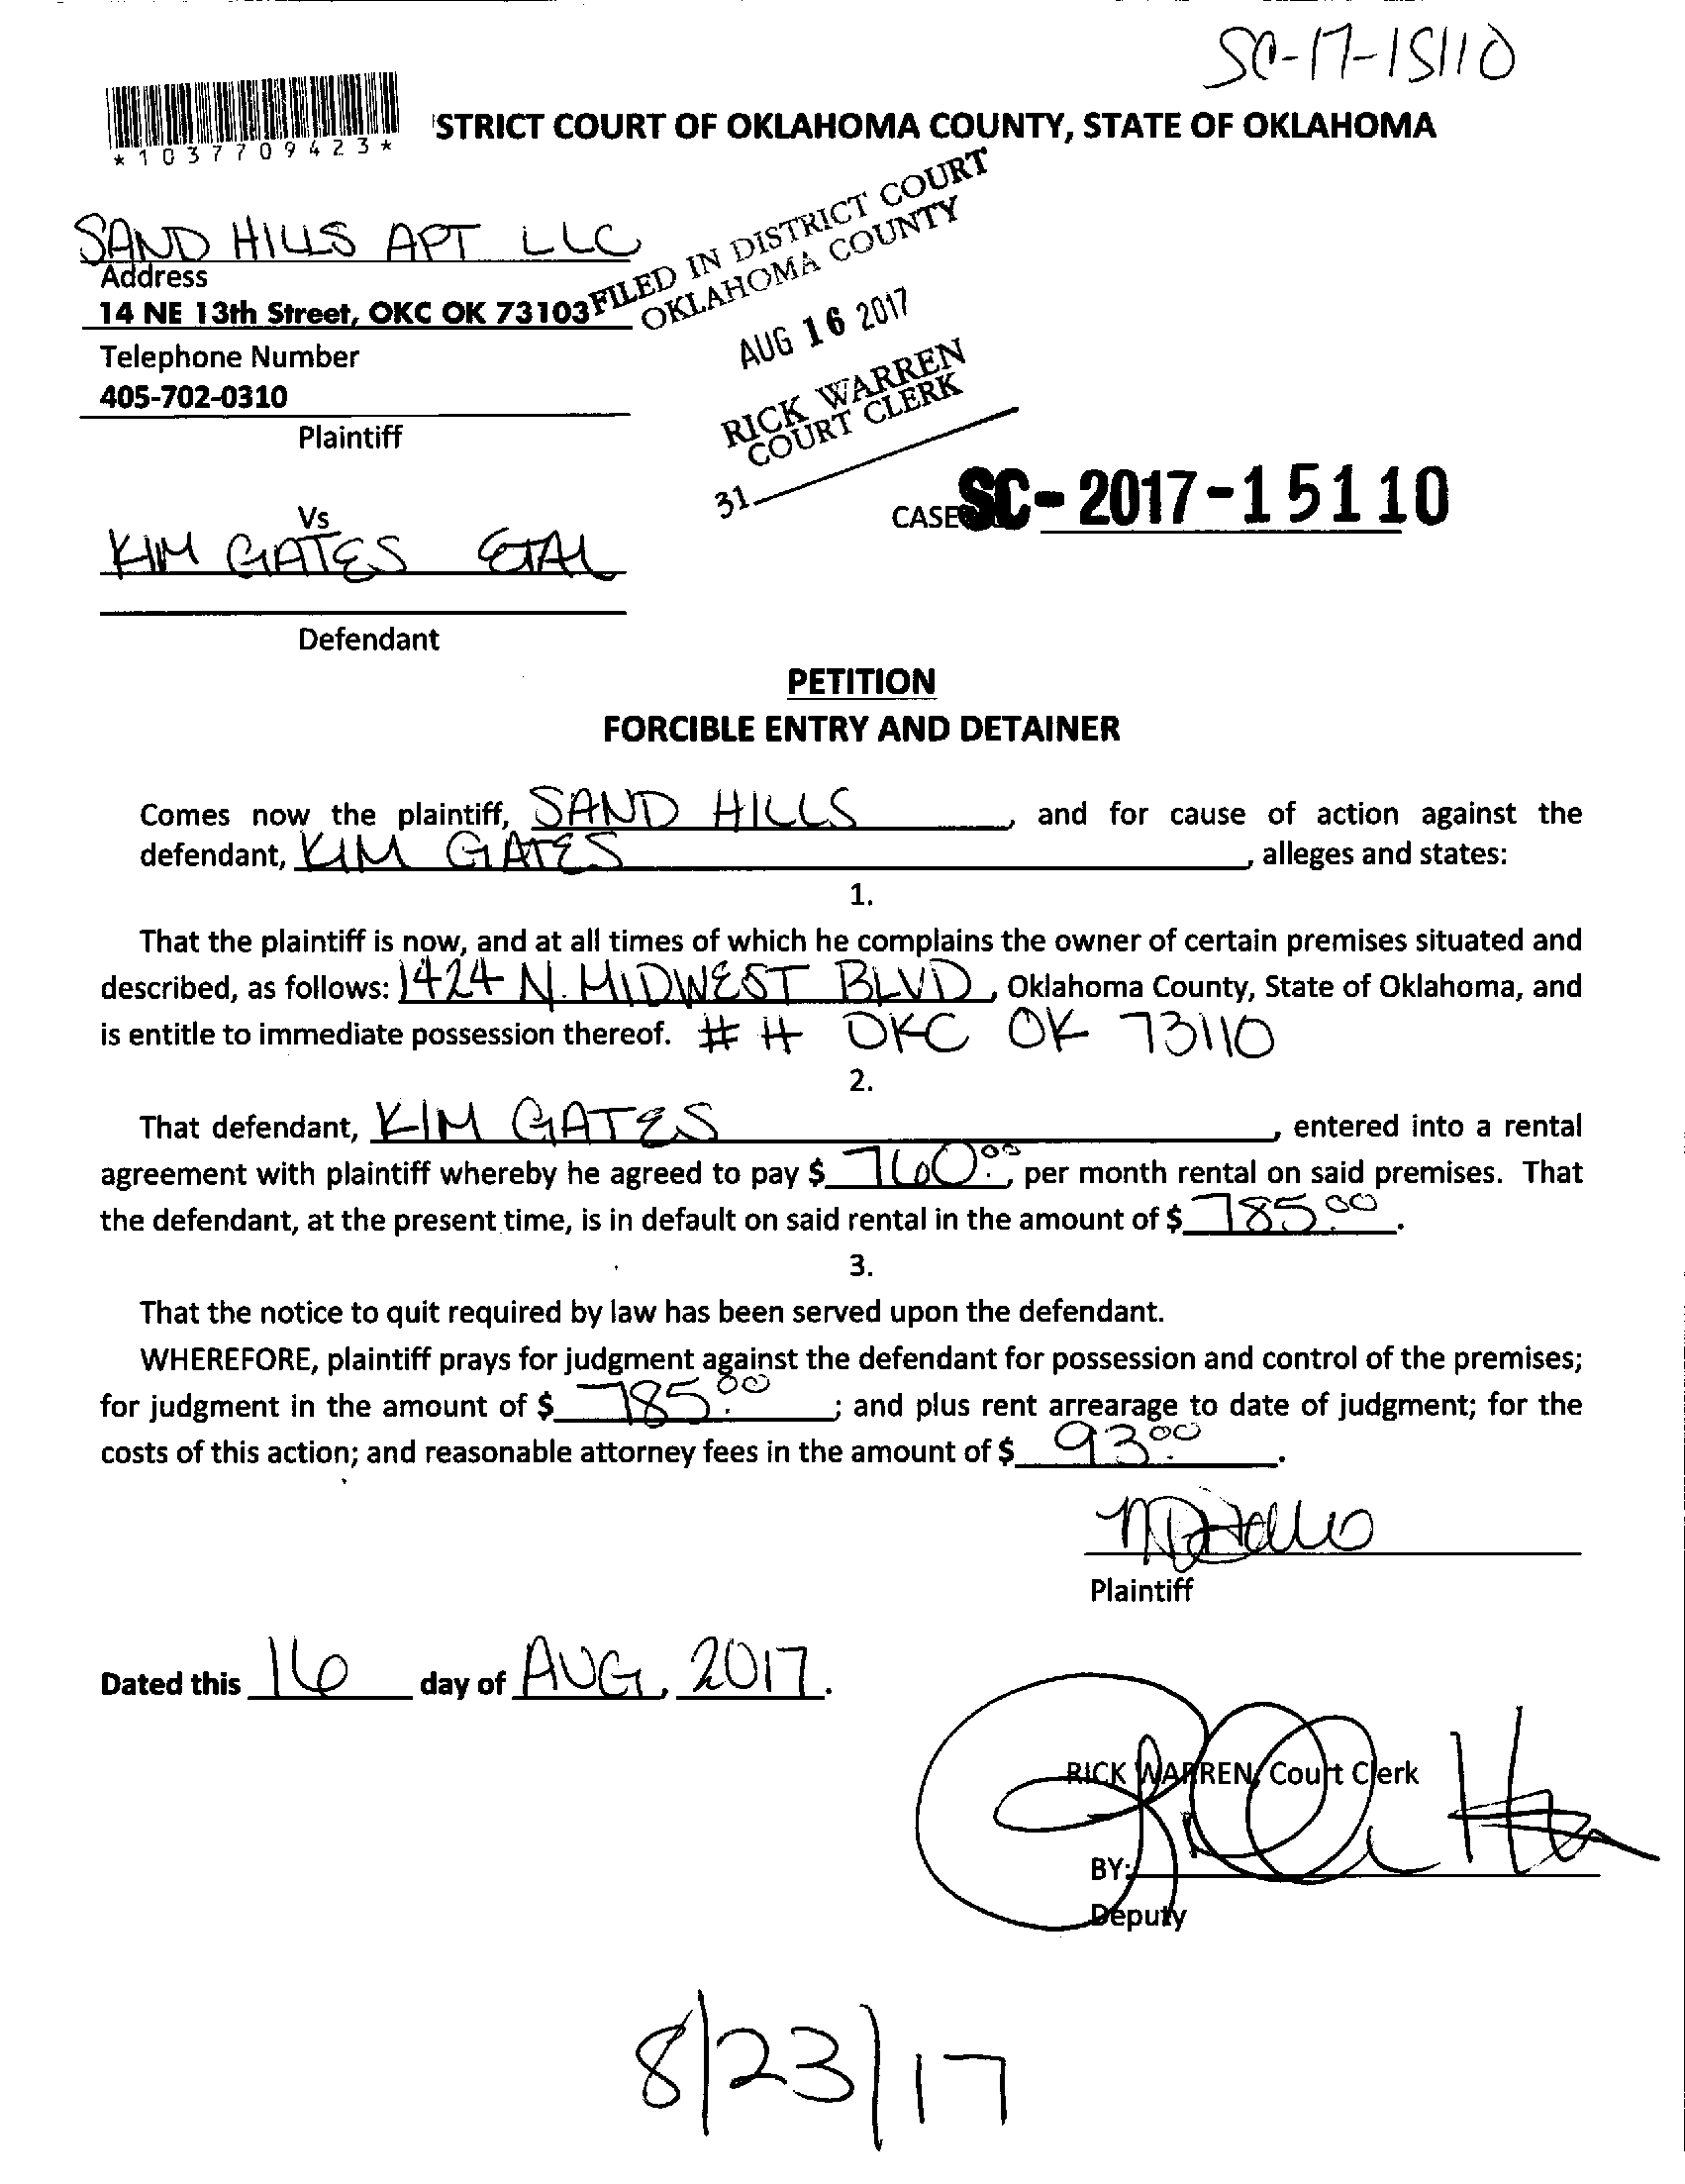 SC-17-15110
*1037709423*
STRICT COURT OF OKLAHOMA COUNTY, STATE OF OKLAHOMA
SAND HILLS APT LLC
Address
14 NE 13th Street, OKC OK 73103
Telephone Number
405-702-0310
Plaintiff
FILED IN DISTRICT COURT
OKLAHOMA COUNTY
AUG 16 2017
RICK WARREN
COURT CLERK
31
Vs
CASE SC-2017-15110
KIM GATES ETAL
Defendant
PETITION
FORCIBLE ENTRY AND DETAINER
Comes now the plaintiff, SAND HILLS, and for cause of action against the
defendant, KIM GATES, alleges and states:
1.
That the plaintiff is now, and at all times of which he complains the owner of certain premises situated and
described, as follows: 1424 N. MIDWEST BLVD, Oklahoma County, State of Oklahoma, and
is entitle to immediate possession thereof. # H OKC OK 73110
2.
That defendant, KIM GATES, entered into a rental
agreement with plaintiff whereby he agreed to pay $ 760.00, per month rental on said premises. That
the defendant, at the present time, is in default on said rental in the amount of $ 785.00.
3.
That the notice to quit required by law has been served upon the defendant.
WHEREFORE, plaintiff prays for judgment against the defendant for possession and control of the premises;
for judgment in the amount of $ 785.00; and plus rent arrearage to date of judgment; for the
costs of this action; and reasonable attorney fees in the amount of $ 93.00.
Plaintiff
Dated this 16 day of AUG, 2017.
RICK WARREN, Court Clerk
BY:
Deputy
8/23/17